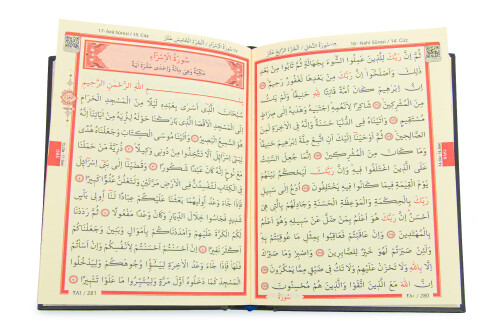 16- Nahl Sûresi / 14. Cüz
ثُمَّ اِنَّ رَبَّكَ لِلَّذِينَ عَمِلُوا السُّوءَ بِجَهَالَةٍ ثُمَّ تَابُوا مِنْ بَعْدِ
ذٰلِكَ وَاَصْلَحُوا اِنَّ رَبَّكَ مِنْ بَعْدِهَا لَغَفُورٌ رَحِيمٌ
اِنَّ اِبْرٰهِيمَ كَانَ اُمَّةً قَانِتًا لِلّٰهِ حَنِيفًا وَلَمْ يَكُ
مِنَ الْمُشْرِكِينَ شَاكِرًا لِاَنْعُمِهِ اِجْتَبٰيهُ وَهَدٰيهُ اِلٰى صِرَاطٍ
مُسْتَقِيمٍ وَاٰتَيْنَاهُ فِى الدُّنْيَا حَسَنَةً وَاِنَّهُ فِى الْاٰخِرَةِ لَمِنَ
الصَّالِحِينَ ثُمَّ اَوْحَيْنَا اِلَيْكَ اَنِ اتَّبِعْ مِلَّةَ اِبْرٰهِيمَ حَنِيفًا
وَمَا كَانَ مِنَ الْمُشْرِكِينَ اِنَّمَا جُعِلَ السَّبْتُ
عَلَى الَّذِينَ اخْتَلَفُوا فِيهِ وَاِنَّ رَبَّكَ لَيَحْكُمُ بَيْنَهُمْ
يَوْمَ الْقِيٰمَةِ فِيمَا كَانُوا فِيهِ يَخْتَلِفُونَ اُدْعُ اِلٰى سَبِيلِ
رَبِّكَ بِالْحِكْمَةِ وَالْمَوْعِظَةِ الْحَسَنَةِ وَجَادِلْهُمْ بِالَّتِى هِىَ
اَحْسَنُ اِنَّ رَبَّكَ هُوَ اَعْلَمُ بِمَنْ ضَلَّ عَنْ سَبِيلِهِ وَهُوَ اَعْلَمُ
بِالْمُهْتَدِينَ وَاِنْ عَاقَبْتُمْ فَعَاقِبُوا بِمِثْلِ مَا عُوقِبْتُمْ بِهِ
وَلَئِنْ صَبَرْتُمْ لَهُوَ خَيْرٌ لِلصَّابِرِينَ وَاصْبِرْ وَمَا صَبْرُكَ
اِلَّا بِاللّٰهِ وَلَا تَحْزَنْ عَلَيْهِمْ وَلَا تَكُ فِى ضَيْقٍ مِمَّا يَمْكُرُونَ
اِنَّ اللّٰهَ مَعَ الَّذِينَ اتَّقَوْا وَالَّذِينَ هُمْ مُحْسِنُونَ
٢٨٠ / 280
17- İsrâ Sûresi / 15. Cüz
سُورَةُ الْاِسْرَاءِ
مَكِّيَّةٌ وَهِىَ مِائَةٌ وَاِحْدٰى عَشْرَةَ اٰيَةً
بِسْمِ اللّٰهِ الرَّحْمٰنِ الرَّحِيمِ
سُبْحَانَ الَّذِى اَسْرٰى بِعَبْدِهِ لَيْلًا مِنَ الْمَسْجِدِ الْحَرَامِ
اِلَى الْمَسْجِدِ الْاَقْصَا الَّذِى بَارَكْنَا حَوْلَهُ لِنُرِيَهُ مِنْ اٰيَاتِنَا اِنَّهُ
هُوَ السَّمِيعُ الْبَصِيرُ وَاٰتَيْنَا مُوسَى الْكِتَابَ وَجَعَلْنَاهُ هُدًى
لِبَنِى اِسْرَائِلَ اَلَّا تَتَّخِذُوا مِنْ دُونِى وَكِيلًا ذُرِّيَّةَ مَنْ حَمَلْنَا
مَعَ نُوحٍ اِنَّهُ كَانَ عَبْدًا شَكُورًا وَقَضَيْنَا اِلٰى بَنِى اِسْرَائِلَ
فِى الْكِتَابِ لَتُفْسِدُنَّ فِى الْاَرْضِ مَرَّتَيْنِ وَلَتَعْلُنَّ عُلُوًّا كَبِيرًا
فَاِذَا جَاءَ وَعْدُ اُولٰيهُمَا بَعَثْنَا عَلَيْكُمْ عِبَادًا لَنَا اُولِى بَأْسٍ
شَدِيدٍ فَجَاسُوا خِلَالَ الدِّيَارِ وَكَانَ وَعْدًا مَفْعُولًا ثُمَّ رَدَدْنَا
لَكُمُ الْكَرَّةَ عَلَيْهِمْ وَاَمْدَدْنَاكُمْ بِاَمْوَالٍ وَبَنِينَ وَجَعَلْنَاكُمْ
اَكْثَرَ نَفِيرًا اِنْ اَحْسَنْتُمْ اَحْسَنْتُمْ لِاَنْفُسِكُمْ وَاِنْ اَسَأْتُمْ
فَلَهَا فَاِذَا جَاءَ وَعْدُ الْاٰخِرَةِ لِيَسُۤؤُا وُجُوهَكُمْ وَلِيَدْخُلُوا
الْمَسْجِدَ كَمَا دَخَلُوهُ اَوَّلَ مَرَّةٍ وَلِيُتَبِّرُوا مَا عَلَوْا تَتْبِيرًا
٢٨١ / 281